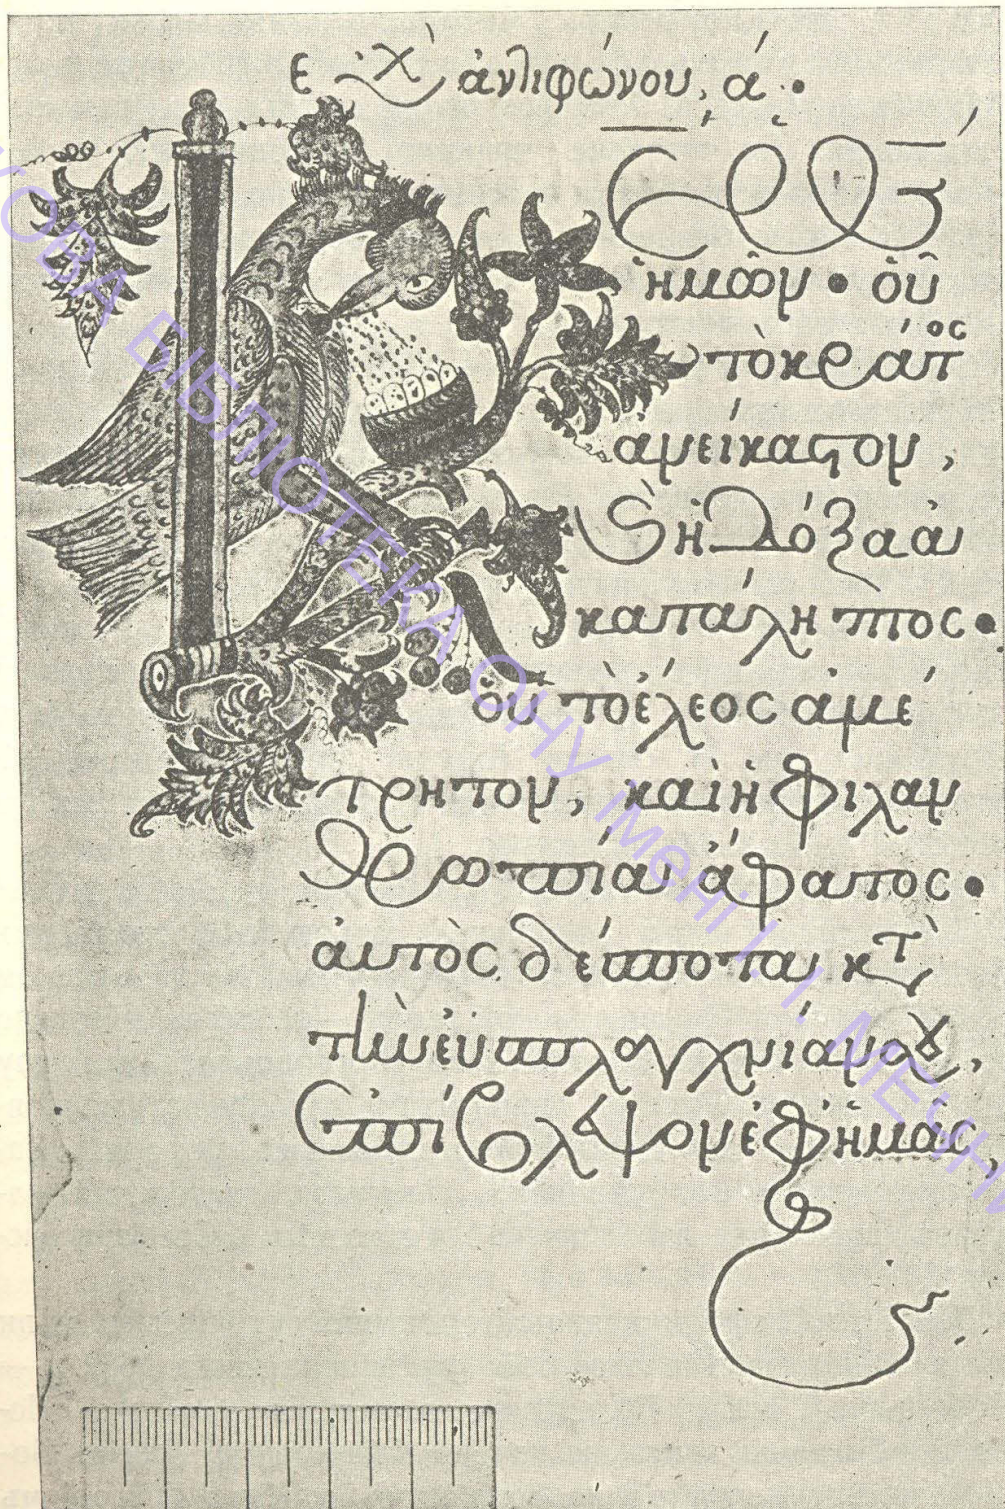 εὐχὴ ἀντιφώνου, α´.
Κύριε ὁ Θ̅ς̅
ἡμῶν • οὗ
τὸ κράτος
ἀνείκαστον,
καὶ ἡ δόξα ἀ
κατάληπτος •
οὗ τὸ ἔλεος ἀμέ
τρητον, καὶ ἡ φιλαν
θρωπία ἄφατος •
αὐτὸς δέσποτα κατὰ
τὴν εὐσπλαγχνίαν σου,
ἐπίβλεψον ἐφ' ἡμᾶς,
НАУКОВА БІБЛІОТЕКА ОНУ імені І. І. МЕЧНИКОВА